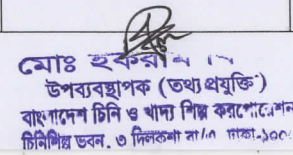 মোঃ ইকরাম
উপব্যবস্থাপক (তথ্য প্রযুক্তি)
বাংলাদেশ চিনি ও খাদ্য শিল্প করপোরেশন
চিনিশিল্প ভবন, ৩ দিলকুশা বা/এ ঢাকা-১০০